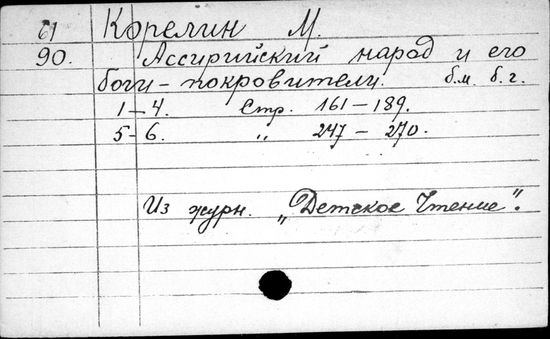 61 Корелин М.
90. Ассирийский народ и его
боги-покровители. б.м. б.г.
1-4. Стр. 161-189.
5-6. " 247-270.
Из журн. „Детское Чтение".